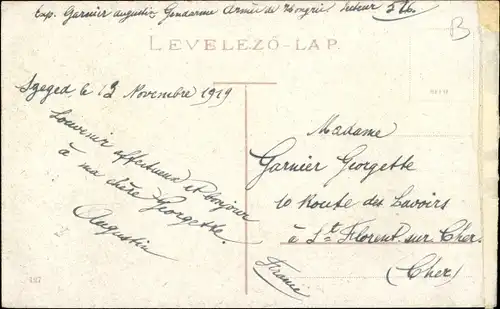 Exp. Garnier Augustin Gendarme Armée de Hongrie Secteur 516.
B
LEVELEZŐ-LAP.
Szeged le 13 Novembre 1919
Souvenir affectueux et bonjour
à ma chère Georgette.
Augustin
Madame
Garnier Georgette
10 Route des Lavoirs
à St Florent sur Cher.
(Cher)
France
127